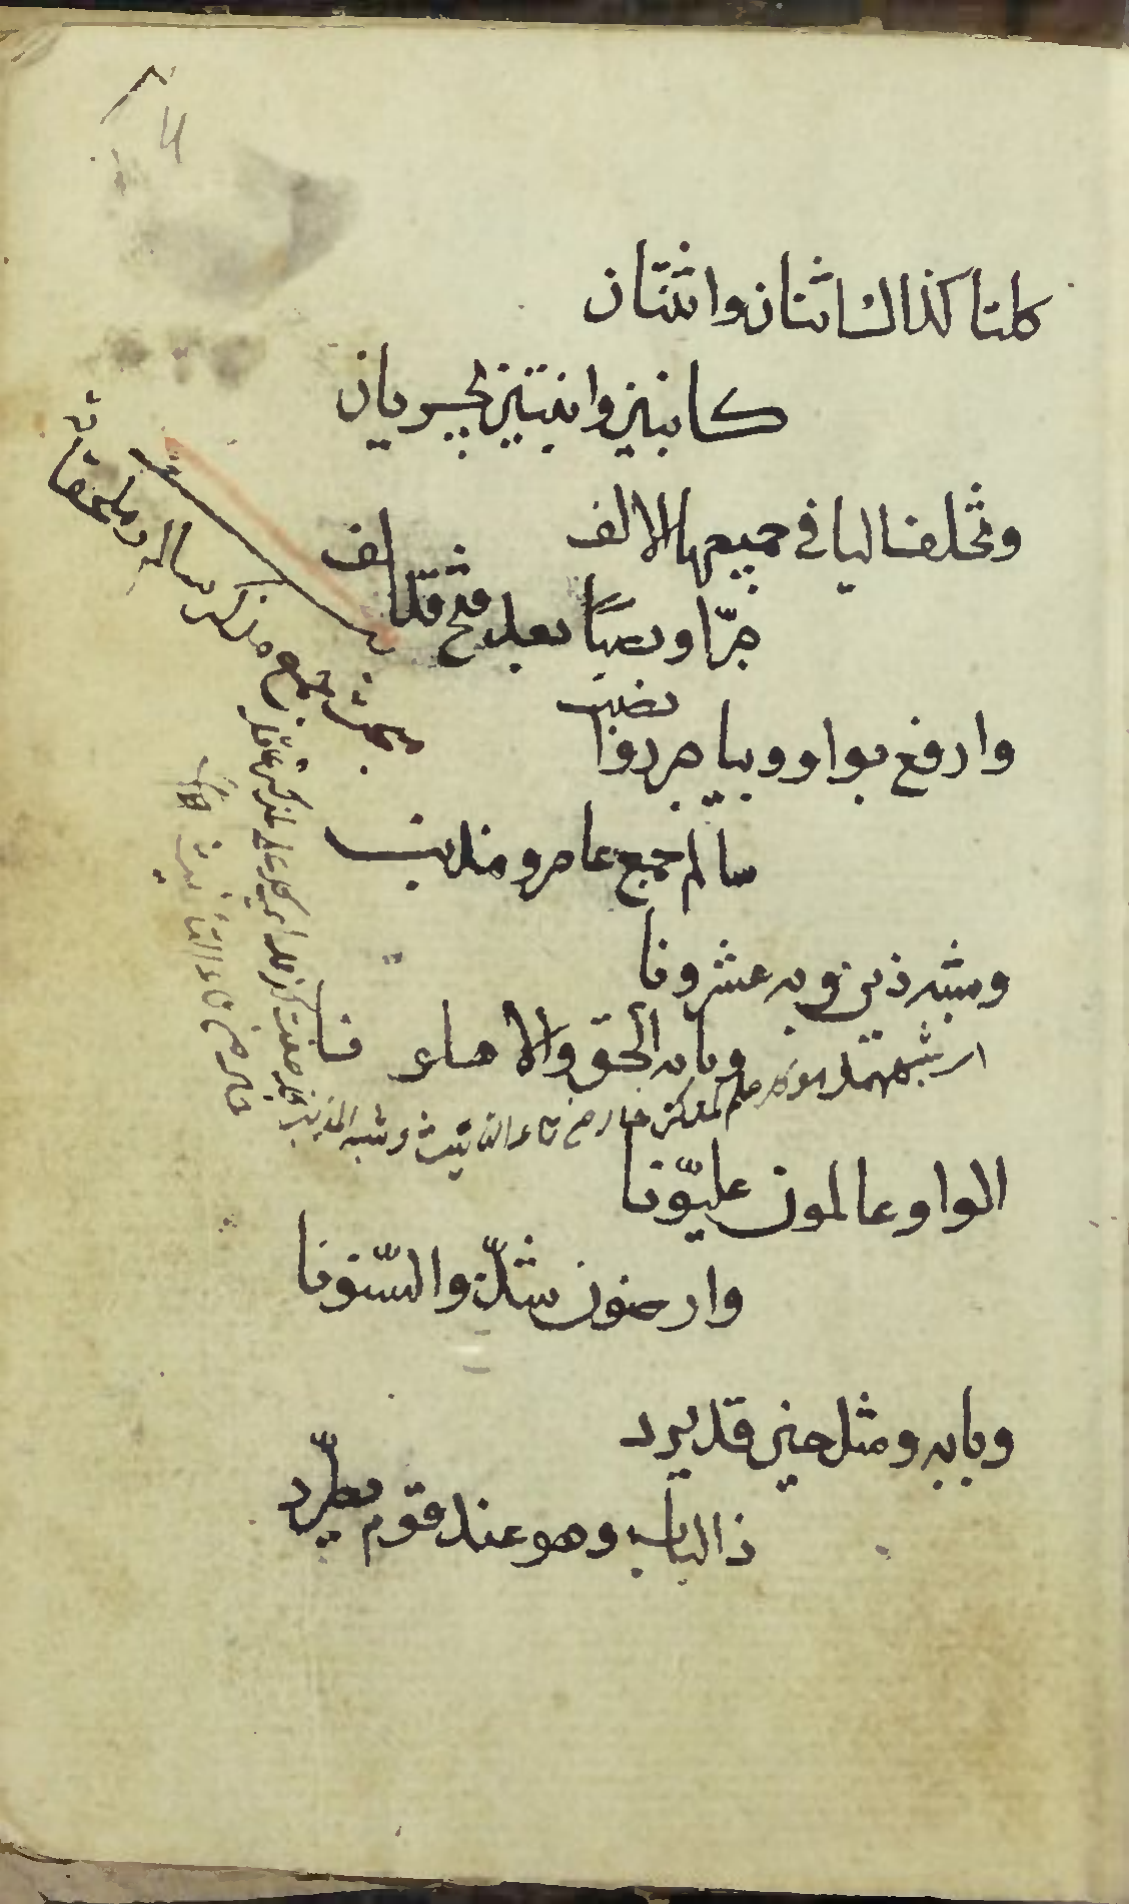 كلتا كذاك اثنان واثنتان
كابنين وابنتين يجريان
وتخلف اليا في جميعها الالف
جرّا ونصبًا بعد فتح قد الف
وارفع بواو وبيا جرد وا
نصب
سالم جمع عامر ومذنب
وشبه ذين وبه عشرونا
وبابه الحق والاهلونا
الواو عالمون عليّونا
وارضون شذّ والسّنونا
وبابه ومثل حين قد يرد
ذا الباب وهو عند قوم يطّرد
مبحث جمع مذكر سالم وملحقاته